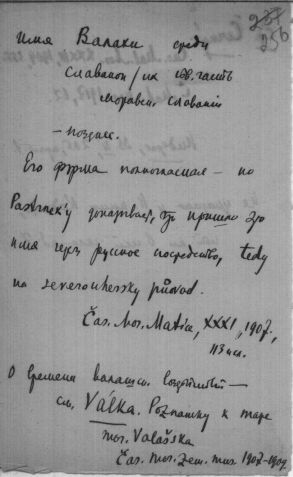 256
имя Валахи среди
славянъ / их юв. часть
моравск. славянъ
— позднее.
Его форма полногласная — по
Pastrnek'у доказывает, что пришло это
имя через русское посредство, tedy
на severouherský původ.
Čas. Mor. Matice, XXXI, 1907,
О времени валашск.
см. VÁLKA. Poznámky k mapě
mor. Valašska
Čas. mor. zem. mus. 1907-1909